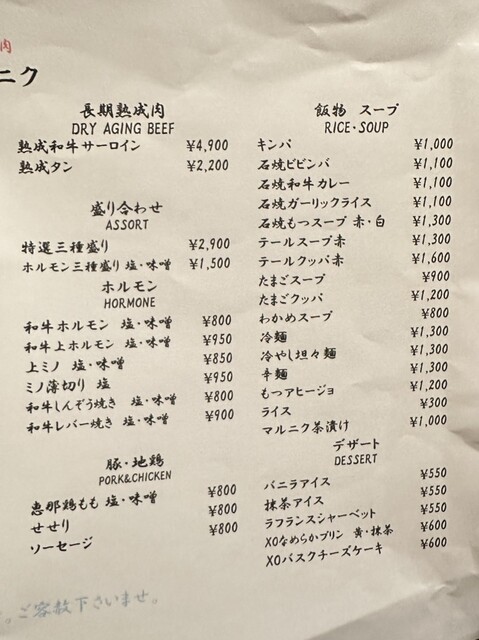 肉
ニク
長期熟成肉
DRY AGING BEEF
熟成和牛サーロイン ¥4,900
熟成タン ¥2,200
盛り合わせ
ASSORT
特選三種盛り ¥2,900
ホルモン三種盛り 塩・味噌 ¥1,500
ホルモン
HORMONE
和牛ホルモン 塩・味噌 ¥800
和牛上ホルモン 塩・味噌 ¥950
上ミノ 塩・味噌 ¥850
ミノ薄切り 塩 ¥950
和牛しんぞう焼き 塩・味噌 ¥800
和牛レバー焼き 塩・味噌 ¥900
豚・地鶏
PORK&CHICKEN
恵那鶏もも 塩・味噌 ¥800
せせり ¥800
ソーセージ ¥800
飯物 スープ
RICE・SOUP
キンパ ¥1,000
石焼ビビンバ ¥1,100
石焼和牛カレー ¥1,100
石焼ガーリックライス ¥1,100
石焼もつスープ 赤・白 ¥1,300
テールスープ赤 ¥1,300
テールクッパ赤 ¥1,600
たまごスープ ¥900
たまごクッパ ¥1,200
わかめスープ ¥800
冷麺 ¥1,300
冷やし坦々麺 ¥1,300
辛麺 ¥1,300
もつアヒージョ ¥1,200
ライス ¥300
マルニク茶漬け ¥1,000
デザート
DESSERT
バニラアイス ¥550
抹茶アイス ¥550
ラフランスシャーベット ¥550
XOなめらかプリン 黄・抹茶 ¥600
XOバスクチーズケーキ ¥600
。ご容赦下さいませ。